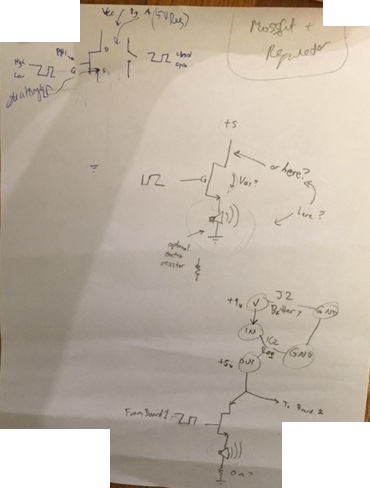 Vcc
Pg A (5V Reg)
Mosfet +
Regulator
High
Low
G
D
S
closed
open
+5
G
Vgs?
or here?
here?
optional
resistor
J2
Battery
+9v
V
GND
IN
IC2
Reg
+5v
OUT
GND
To Board 2
From Board 1